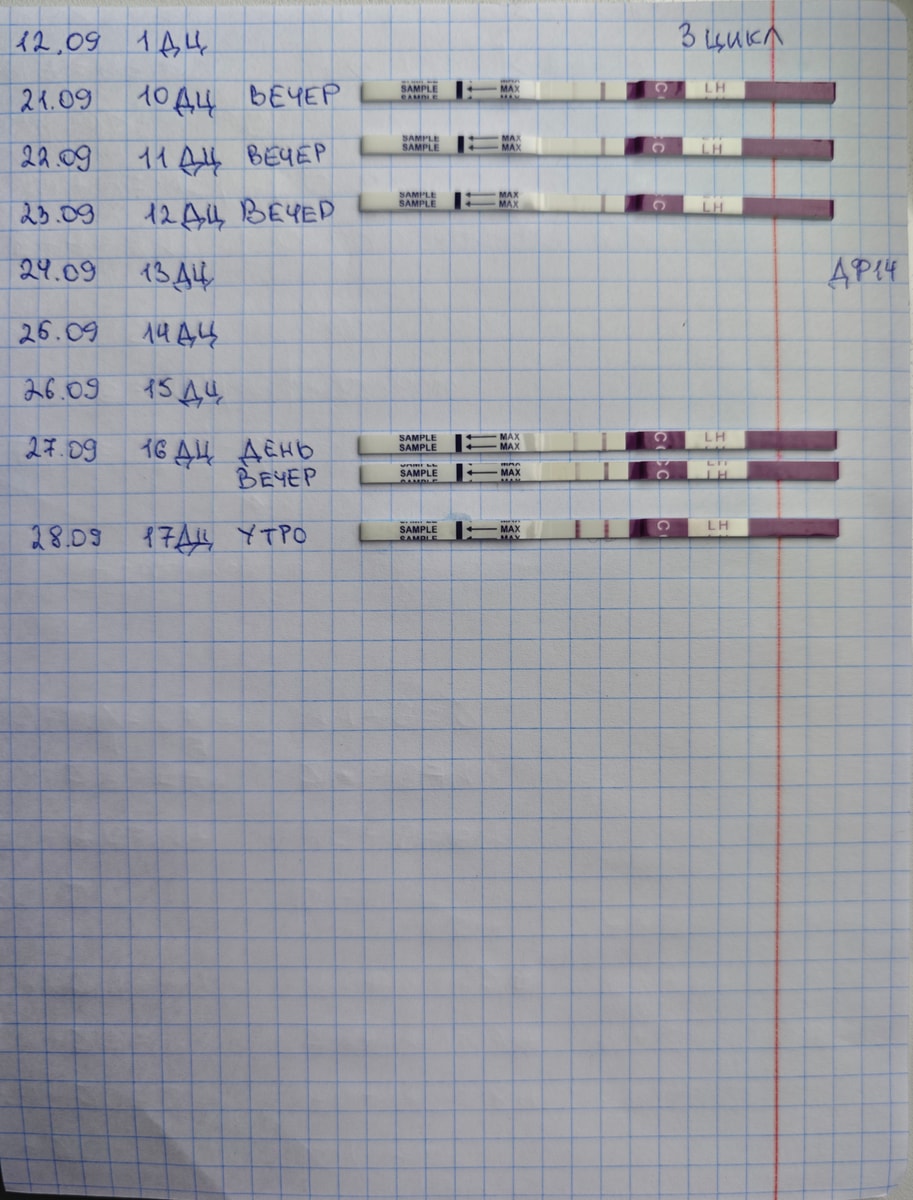 12.09 1 ДЦ 3 ЦИКЛ
21.09 10 ДЦ ВЕЧЕР SAMPLE MAX C LH
22.09 11 ДЦ ВЕЧЕР SAMPLE SAMPLE MAX MAX C LH
23.09 12 ДЦ ВЕЧЕР SAMPLE SAMPLE MAX MAX C LH
24.09 13 ДЦ ДФ14
25.09 14 ДЦ
26.09 15 ДЦ
27.09 16 ДЦ ДЕНЬ SAMPLE SAMPLE MAX MAX C LH
ВЕЧЕР SAMPLE MAX C LH
28.09 17 ДЦ УТРО SAMPLE MAX C LH